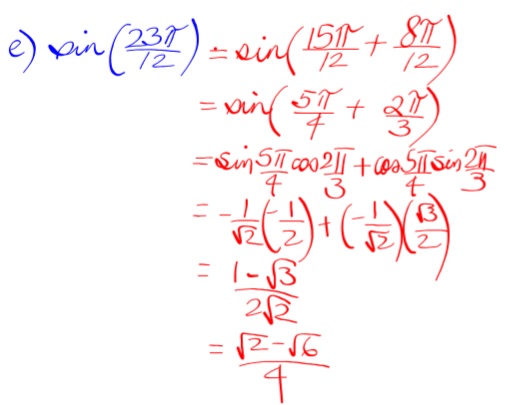 e) sin(23π/12) = sin(15π/12 + 8π/12)
= sin(5π/4 + 2π/3)
= sin 5π/4 cos 2π/3 + cos 5π/4 sin 2π/3
= -1/√2(-1/2) + (-1/√2)(√3/2)
= 1-√3/2√2
= √2-√6/4